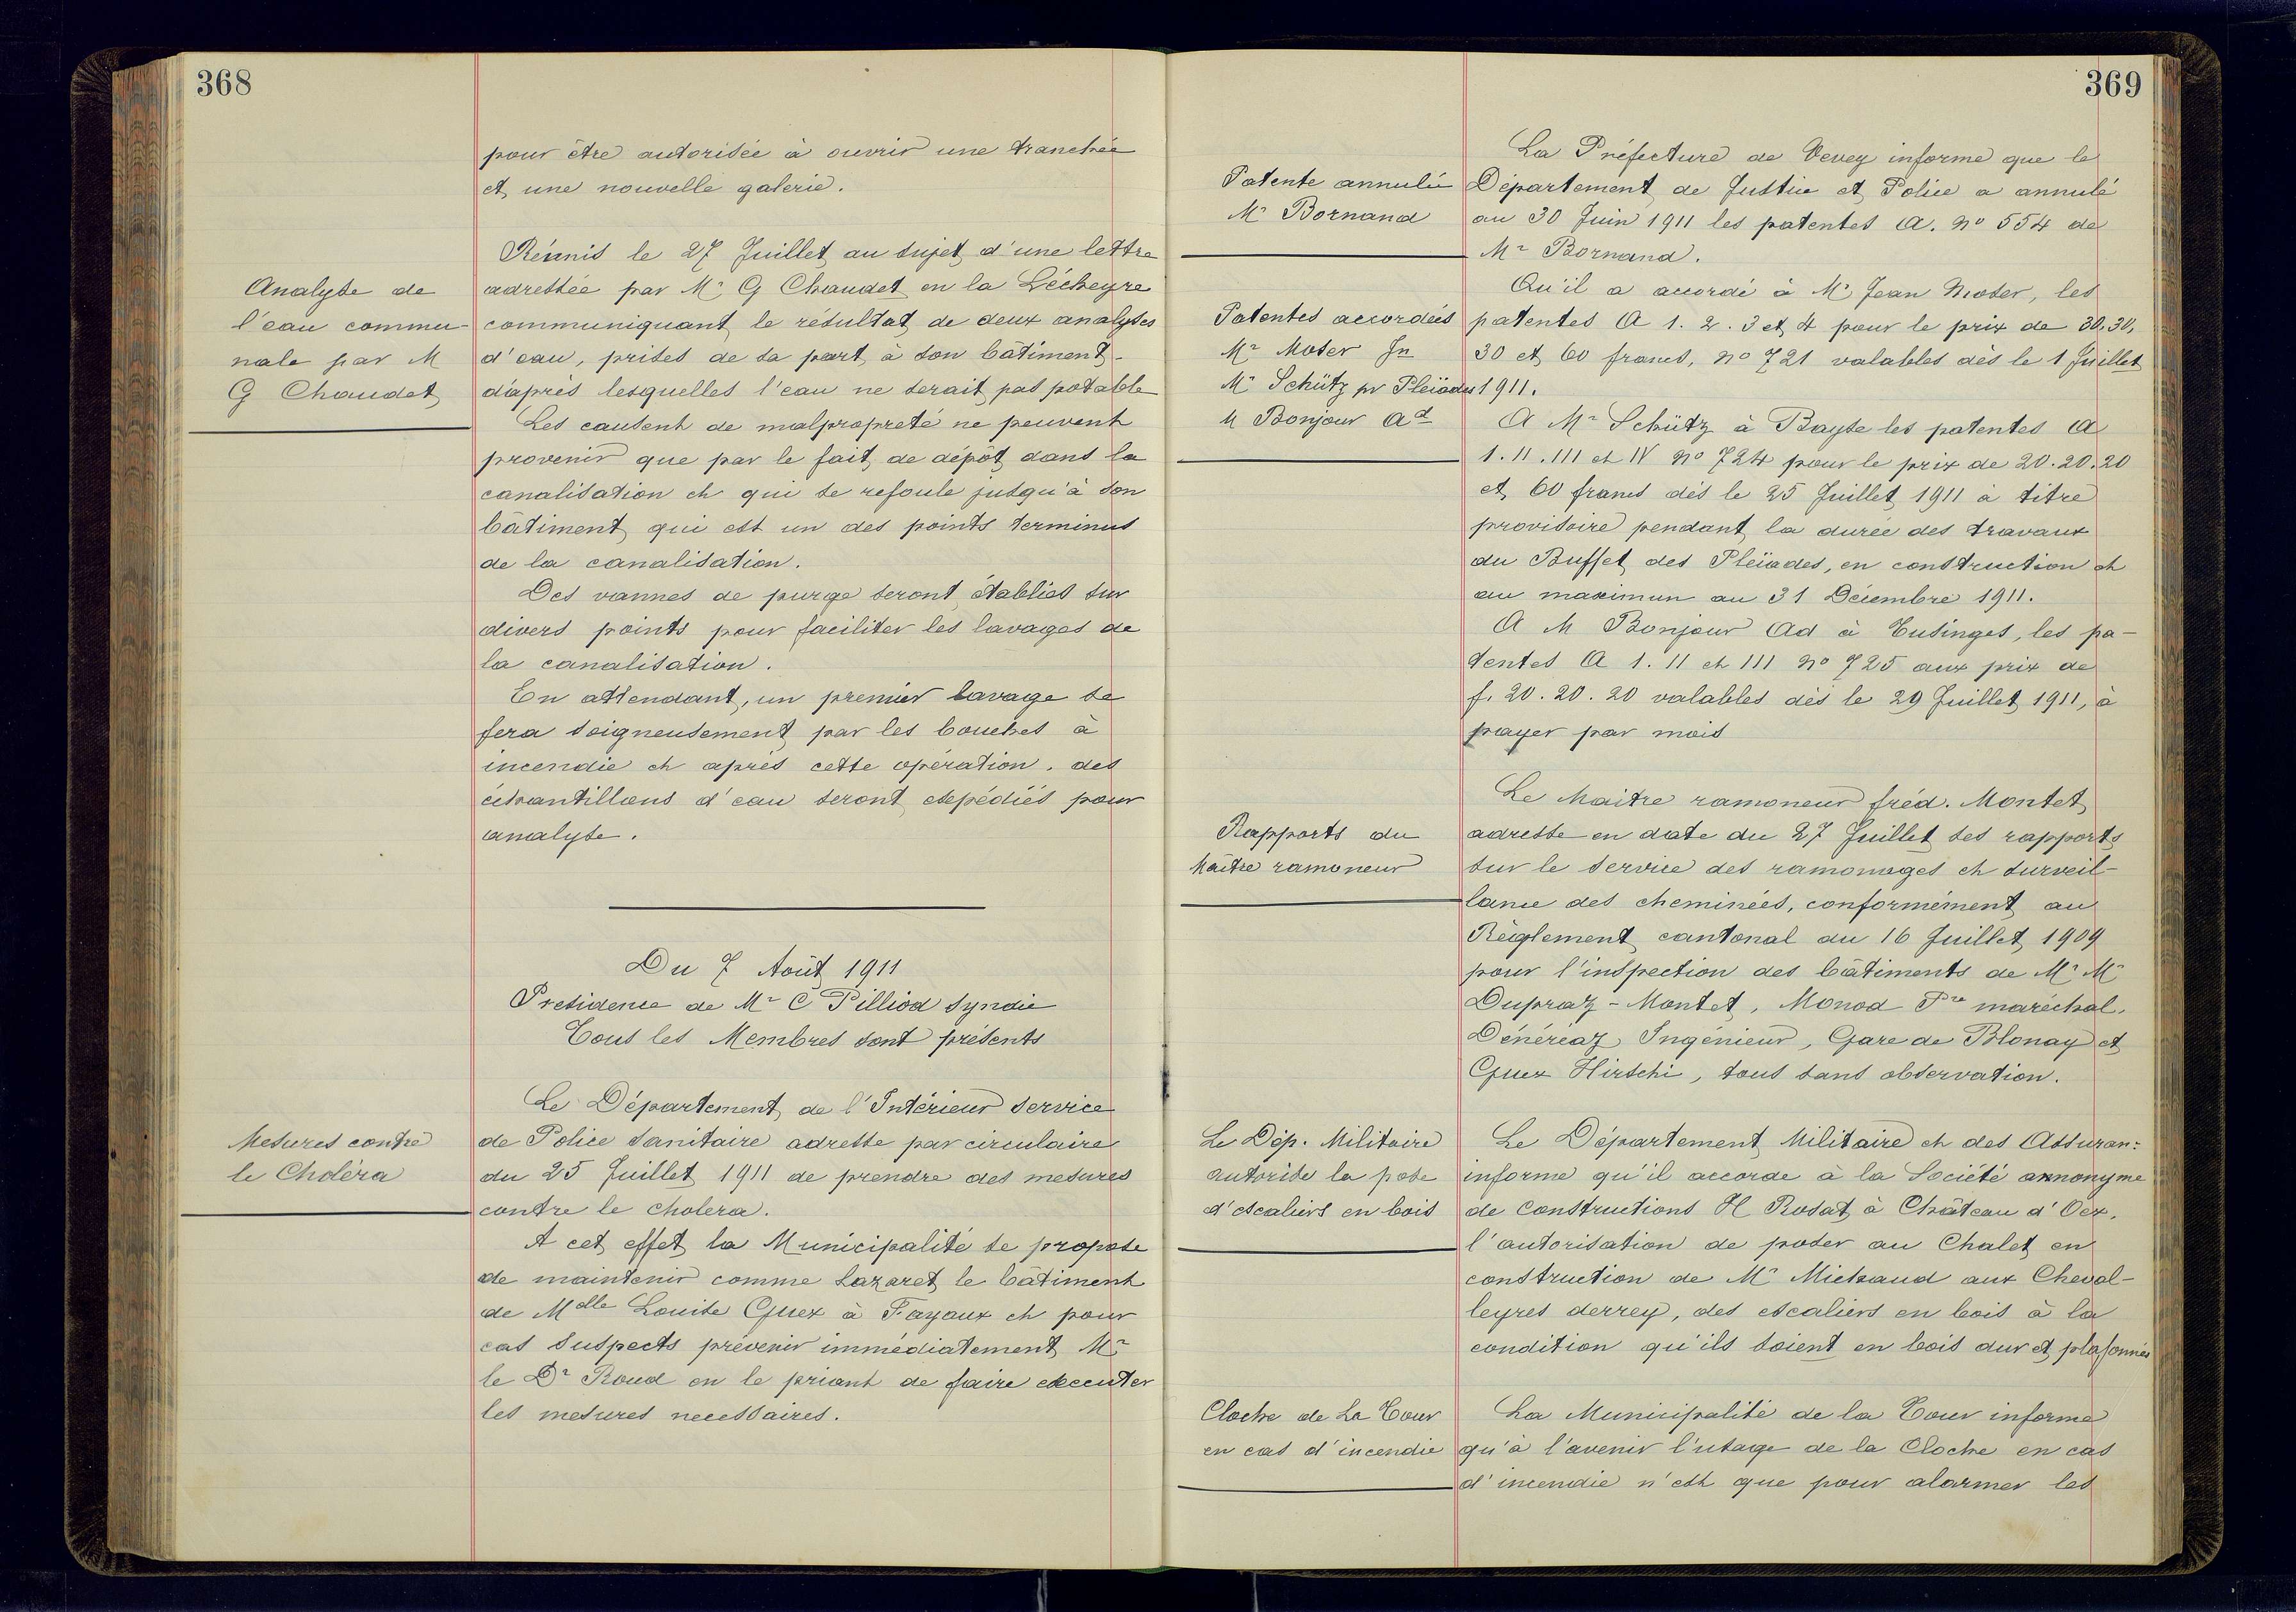 368
pour être autorisée à ouvrir une tranchée
et une nouvelle galerie.
Analyse de
l'eau commu-
nale par M
G Chaudet
Réunis le 27 Juillet au sujet d'une lettre
adressée par Mr G Chaudet en la Lécheyre
communiquant le résultat de deux analyses
d'eau, prises de sa part à son bâtiment
d'après lesquelles l'eau ne serait pas potable
Les causent de malpropreté ne peuvent
provenir que par le fait de dépôt dans la
canalisation et qui se refoule jusqu'à son
bâtiment qui est un des points terminus
de la canalisation.
Des vannes de purge seront établies sur
divers points pour faciliter les lavages de
la canalisation.
En attendant, un premier lavage se
fera soigneusement par les bouches à
incendie et après cette opération. des
échantillons d'eau seront expédiés pour
analyse.
Du 7 Août 1911
Presidence de Mr C Pilliod Syndic
Tous les Membres sont présents
Mesures contre
le Choléra
Le Département de l'Intérieur service
de Police sanitaire adresse par circulaire
du 25 Juillet 1911 de prendre des mesures
contre le cholera.
A cet effet la Municipalité se propose
de maintenir comme Lazaret le bâtiment
de Mdlle Louise Guex à Fayaux et pour
cas suspects prévenir immédiatement Mr
le Dr Roud en le priant de faire executer
les mesures necessaires.
369
Patente annulée
Mr Bornand
La Préfecture de Vevey informe que le
Département de Justice et Police a annulé
au 30 Juin 1911 les patentes A. no 554 de
Mr Bornand.
Patentes accordées
Mr Moser Jn
Mr Schütz pr Pleiades
M Bonjour Ad
Qu'il a accordé à Mr Jean Moser, les
patentes A 1. 2. 3 et 4 pour le prix de 30. 30,
30 et 60 francs, no 721 valables dès le 1 Juillet
1911.
A Mr Schütz à Bayse les patentes A
1. II. III et IV no 724 pour le prix de 20. 20. 20
et 60 francs dès le 25 Juillet 1911 à titre
provisoire pendant la durée des travaux
du Buffet des Pleïades, en construction et
au maximun au 31 Décembre 1911.
A M Bonjour Ad à Tusinges, les pa-
tentes A 1. II et III no 725 aux prix de
f. 20. 20. 20 valables dès le 29 Juillet 1911, à
payer par mois
Rapports du
Maître ramoneur
Le Maitre ramoneur fréd. Montet
adresse en date du 27 Juillet ses rapports
sur le service des ramonages et surveil-
lance des cheminées, conformément au
Règlement cantonal du 16 Juillet 1909
pour l'inspection des bâtiments de Mr Mr
Dupraz-Montet, Monod Pre maréchal,
Dénéréaz Ingénieur, Gare de Blonay et
Guex Hirschi, tous sans observation.
Le Dép. Militaire
autorise la pose
d'escaliers en bois
Le Département Militaire et des Assuran:
informe qu'il accorde à la Société annonyme
de constructions H Rosat à Château d'Oex,
l'autorisation de poser au Chalet en
construction de Mr Michaud aux Cheval-
leyres derrey, des escaliers en bois à la
condition qu'ils soient en bois dur et plafonnés
Cloche de La Tour
en cas d'incendie
La Municipalité de la Tour informe
qu'à l'avenir l'usage de la Cloche en cas
d'incendie n'est que pour alarmer les